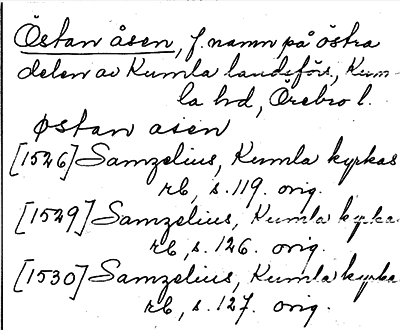 Östan åsen, f. namn på östra
delen av Kumla landsförs., Kum-
la hd, Örebro l.
østan asen
[1526] Samzelius, Kumla kyrkas
rb, s. 119. orig.
[1529] Samzelius, Kumla kyrka.
rb, s. 126. orig.
[1530] Samzelius, Kumla kyrka
rb, s. 127. orig.